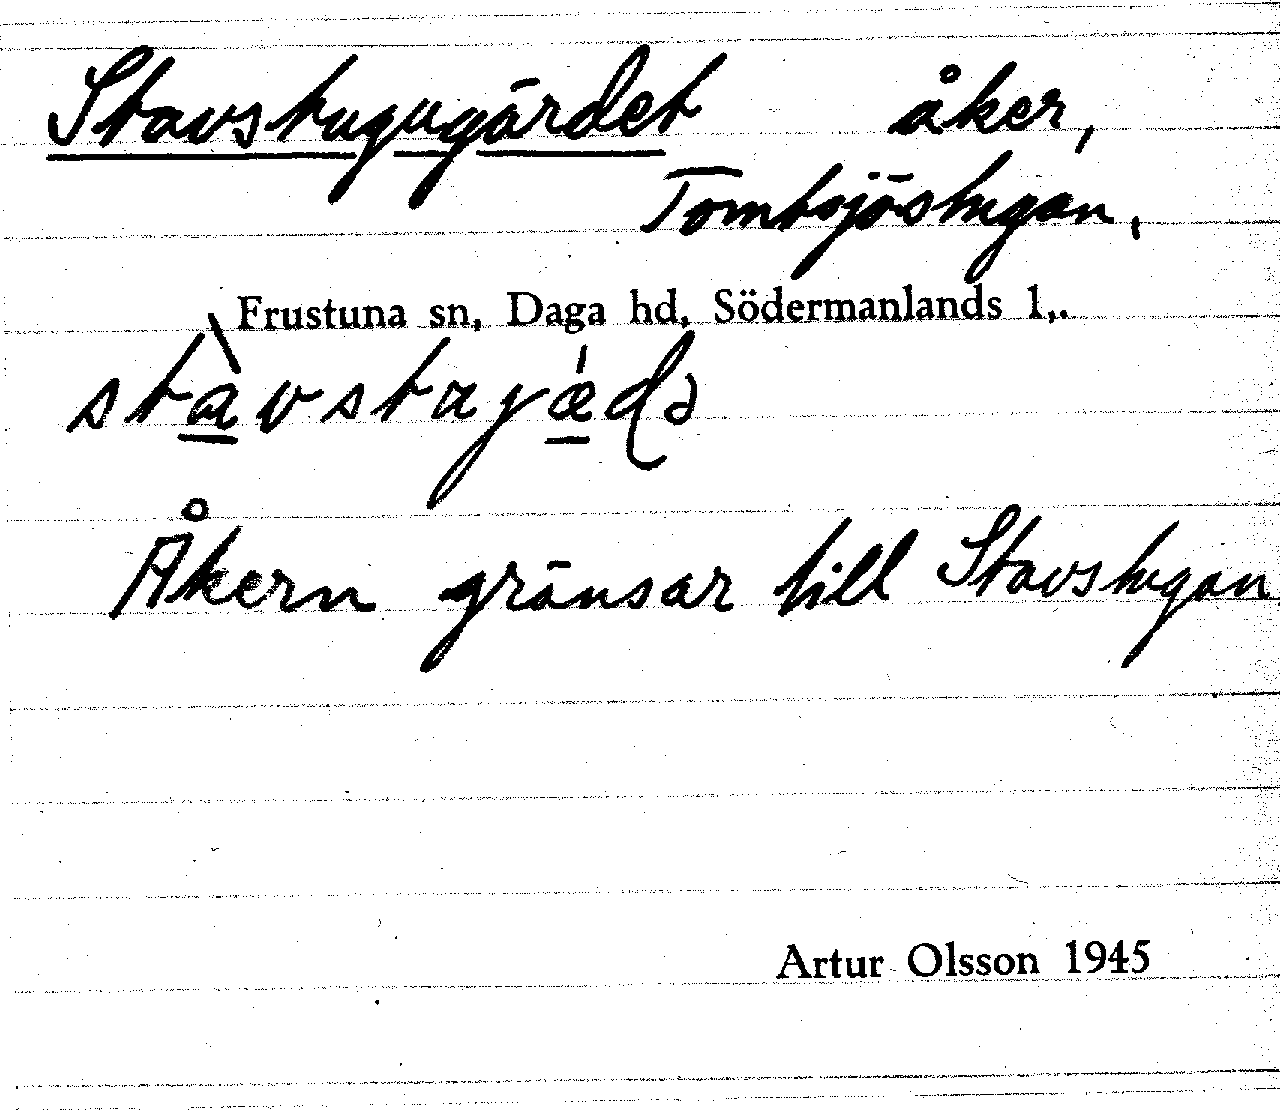 Stavstugugärdet åker,
Tomtsjöstugan,
Frustuna sn, Daga hd, Södermanlands l,.
stàvstaγǽḍə
Åkern gränsar till Stavstugan
Artur Olsson 1945